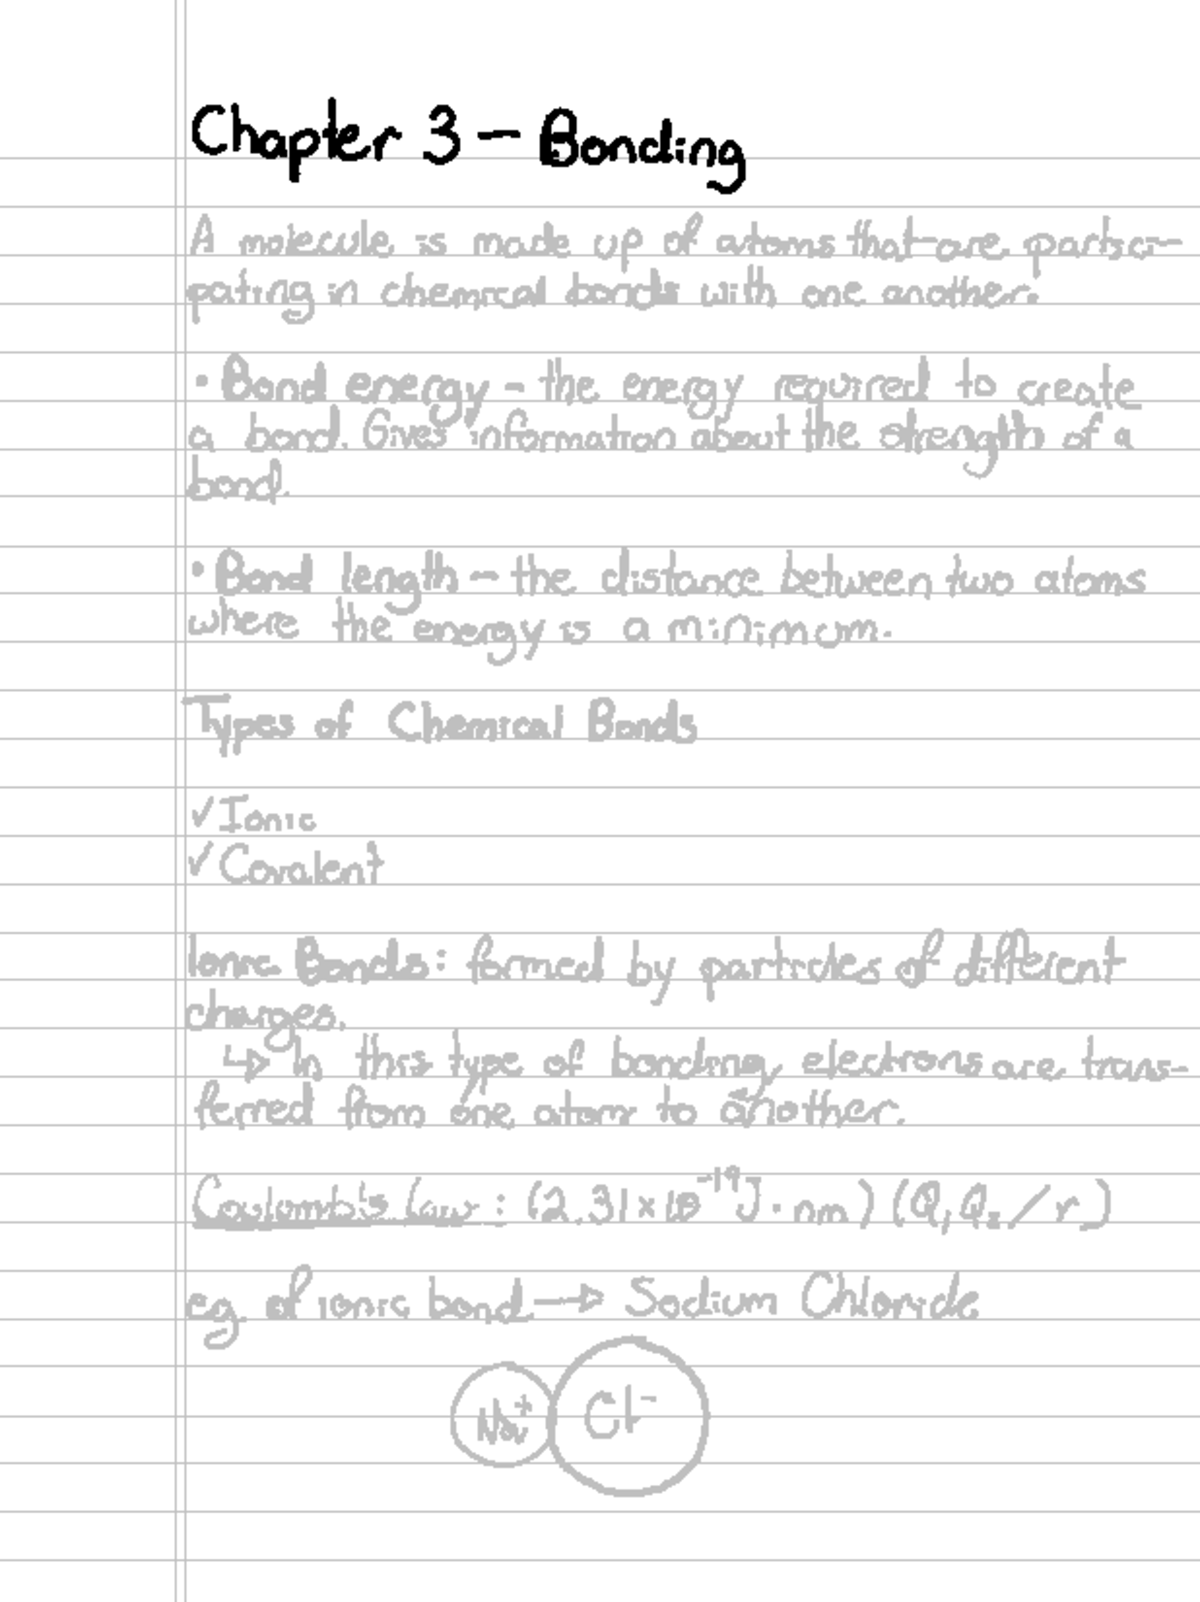 Chapter 3 – Bonding
A molecule is made up of atoms that are partici-
pating in chemical bonds with one another.
• Bond energy – the energy required to create
a bond. Gives information about the strength of a
bond.
• Bond length – the distance between two atoms
where the energy is a minimum.
Types of Chemical Bonds
✓ Ionic
✓ Covalent
Ionic Bonds: formed by particles of different
charges.
↳ In this type of bonding, electrons are trans-
ferred from one atom to another.
Coulomb's Law: (2.31 × 10⁻¹⁹ J · nm) (Q₁ Q₂ / r)
eg. of ionic bond → Sodium Chloride
Na⁺ Cl⁻